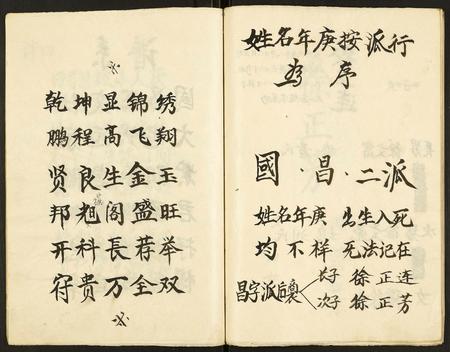 姓名年庚按派行
为序
國·昌·二派
姓名年庚出生入死
均不祥无法记在
昌字派后裔
长子徐正连
次子徐正芳
乾坤显锦绣
鹏程高飞翔
贤良生金玉
邦阁盛旺
开科長荐举
富贵万全双